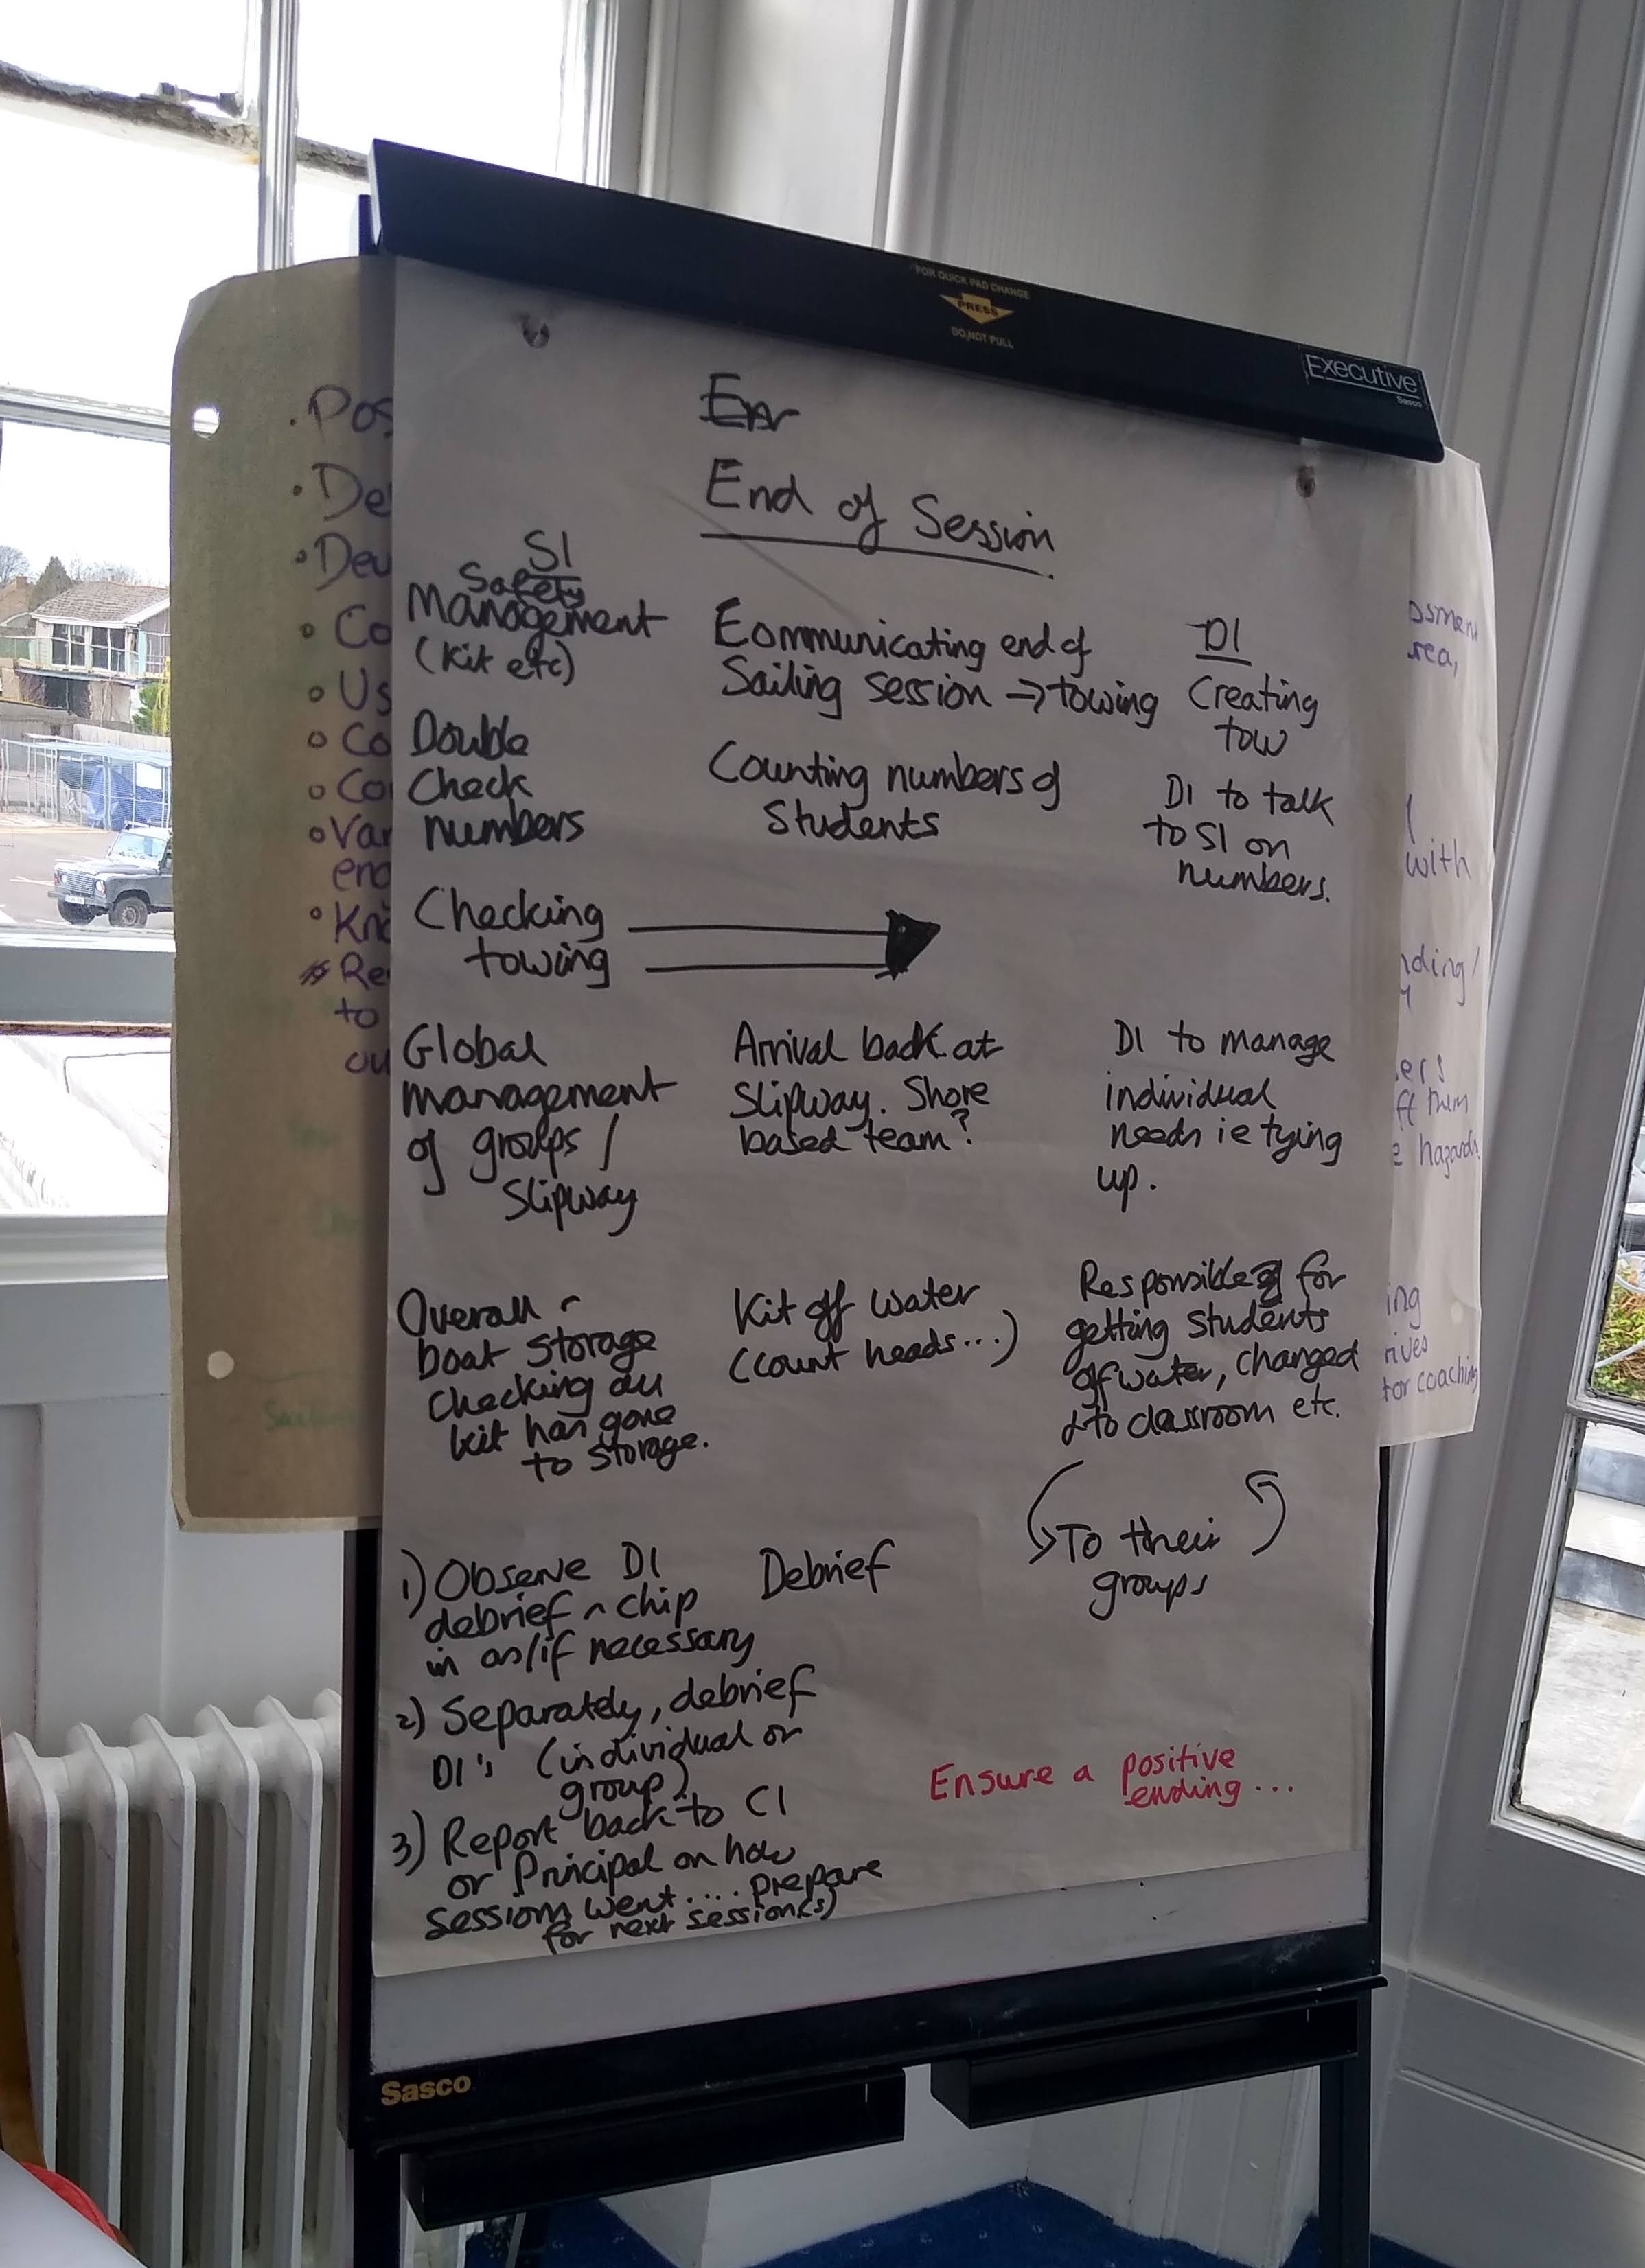 FOR QUICK PAD CHANGE
PRESS
DO NOT PULL
Executive
Sasco
End of Session
SI
Safety
Management
(Kit etc)
Eommunicating end of
Sailing session → towing
DI
Creating
tow
Double
Check
numbers
Counting numbers of
Students
DI to talk
to SI on
numbers.
Checking
towing
Global
management
of groups /
Slipway
Arrival back at
Slipway. Shore
based team?
DI to manage
individual
needs ie tying
up.
Overall -
boat storage
checking all
kit has gone
to storage.
Kit off water
(count heads...)
Responsible for
getting students
off water, changed
& to classroom etc.
1) Observe DI
debrief ^ chip
in as/if necessary
Debrief
To their
groups
2) Separately, debrief
DI's (individual or
group)
3) Report back to CI
or Principal on how
sessions went.... prepare
for next session(s)
Ensure a positive
ending...
Sasco
. Pos
• De
• Dev
• Co
• Us
• Co
• Co
• Var
end
• Kn
Re
to
ou
rea,
with
nding/
ers
ff them
e hazards
ing
rives
tor coaching